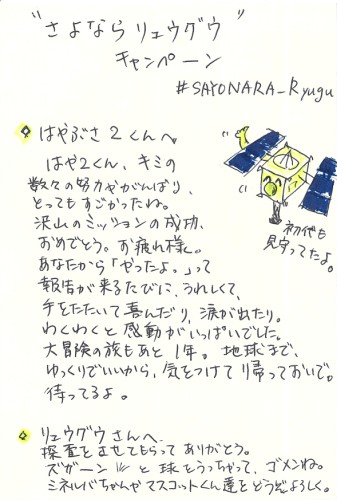 "さよなら リュウグウ"
キャンペーン
#SAYONARA_Ryugu
はやぶさ2くんへ
はや2くん、キミの
数々の努力やがんばり、
とってもすごかったね。
沢山のミッションの成功、
おめでとう。お疲れ様。
あなたから「やったよ。」って
報告が来るたびに、うれしくて、
手をたたいて喜んだり、涙が出たり。
わくわくと感動がいっぱいでした。
大冒険の旅もあと1年。地球まで、
ゆっくりでいいから、気をつけて帰っておいで。
待ってるよ。
初代も
見守ってたよ。
リュウグウさんへ
探査をさせてもらってありがとう。
ズガーン!!!と球をうっちゃって、ゴメンね。
ミネルバちゃんやマスコットくん達をどうぞよろしく。